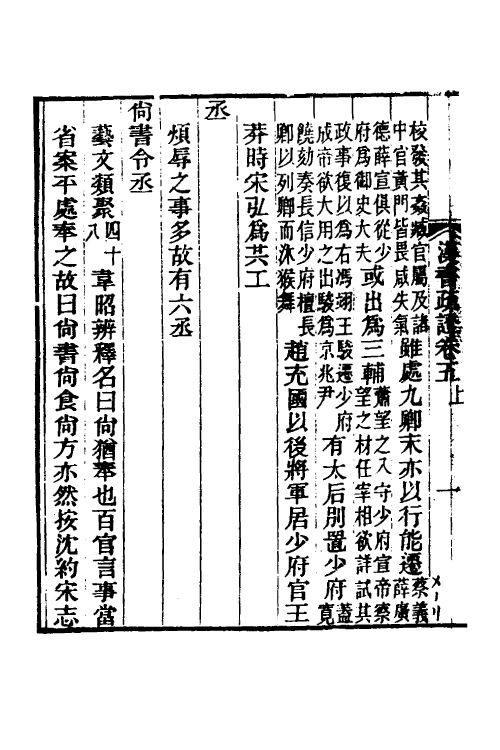 漢書疏證卷五上
一
校發其姦臧官屬及諸
中官黃門皆畏咸失氣
雖處九卿末亦以行能遷
蔡義
薛廣
德薛宣俱從少
府爲御史大夫
或出爲三輔
蕭望之入守少府宣帝察
望之材任宰相欲詳試其
政事復以爲右馮翊王駿遷少府
成帝欲大用之出駿爲京兆尹
有太后則置少府
蓋
寬
饒劾奏長信少府檀長
卿以列卿而沐猴舞
趙充國以後將軍居少府官王
莽時宋弘爲共工
丞
煩辱之事多故有六丞
尙書令丞
藝文類聚
四十
八
韋昭辨釋名曰尙猶奉也百官言事當
省案平處奉之故曰尙書尙食尙方亦然按沈約宋志